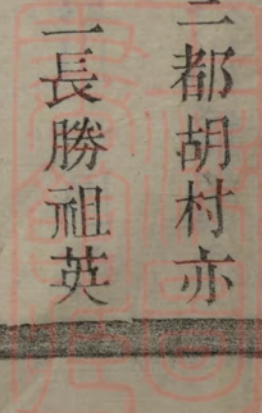 二都胡村亦
一長勝祖英